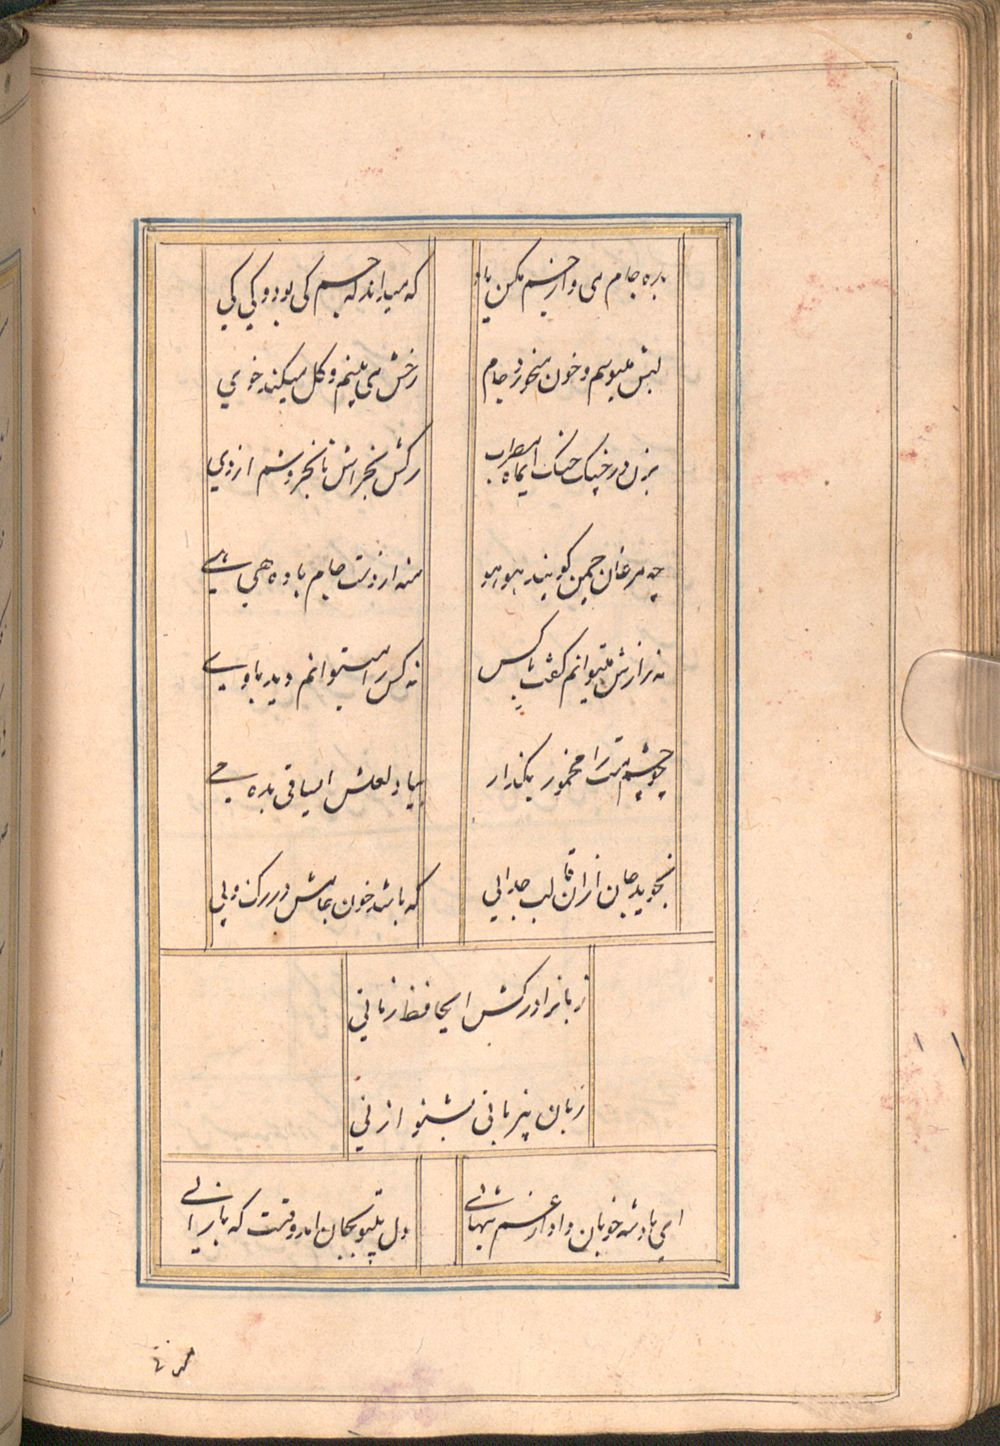 بده جام می و از جم مکن یاد
که میداند که جم کی بود و کی کی
لبش میبوسم و خون میخورد جام
رخش می بینم و گل میکند خوی
بزن در چنگ چنگ ایماه مطرب
رگش بخراش تا بخروشم از وی
چو مرغان چمن گویند هو هو
منه از دست جام باده هی هی
نه رازش میتوانم گفت با کس
نه کس را میتوانم دید با وی
چو چشم مست را مخمور بگذار
بیاد لعلش ایساقی بده می
نجوید جان از ان قالب جدایی
که باشد خون جامش در رگ و پی
زبانرا درکش ایحافظ زمانی
زبان بیزبانی بشنو از نی
ای پادشه خوبان داد از غم تنهایی
دل بیتو بجان امد وقتست که باز ایی